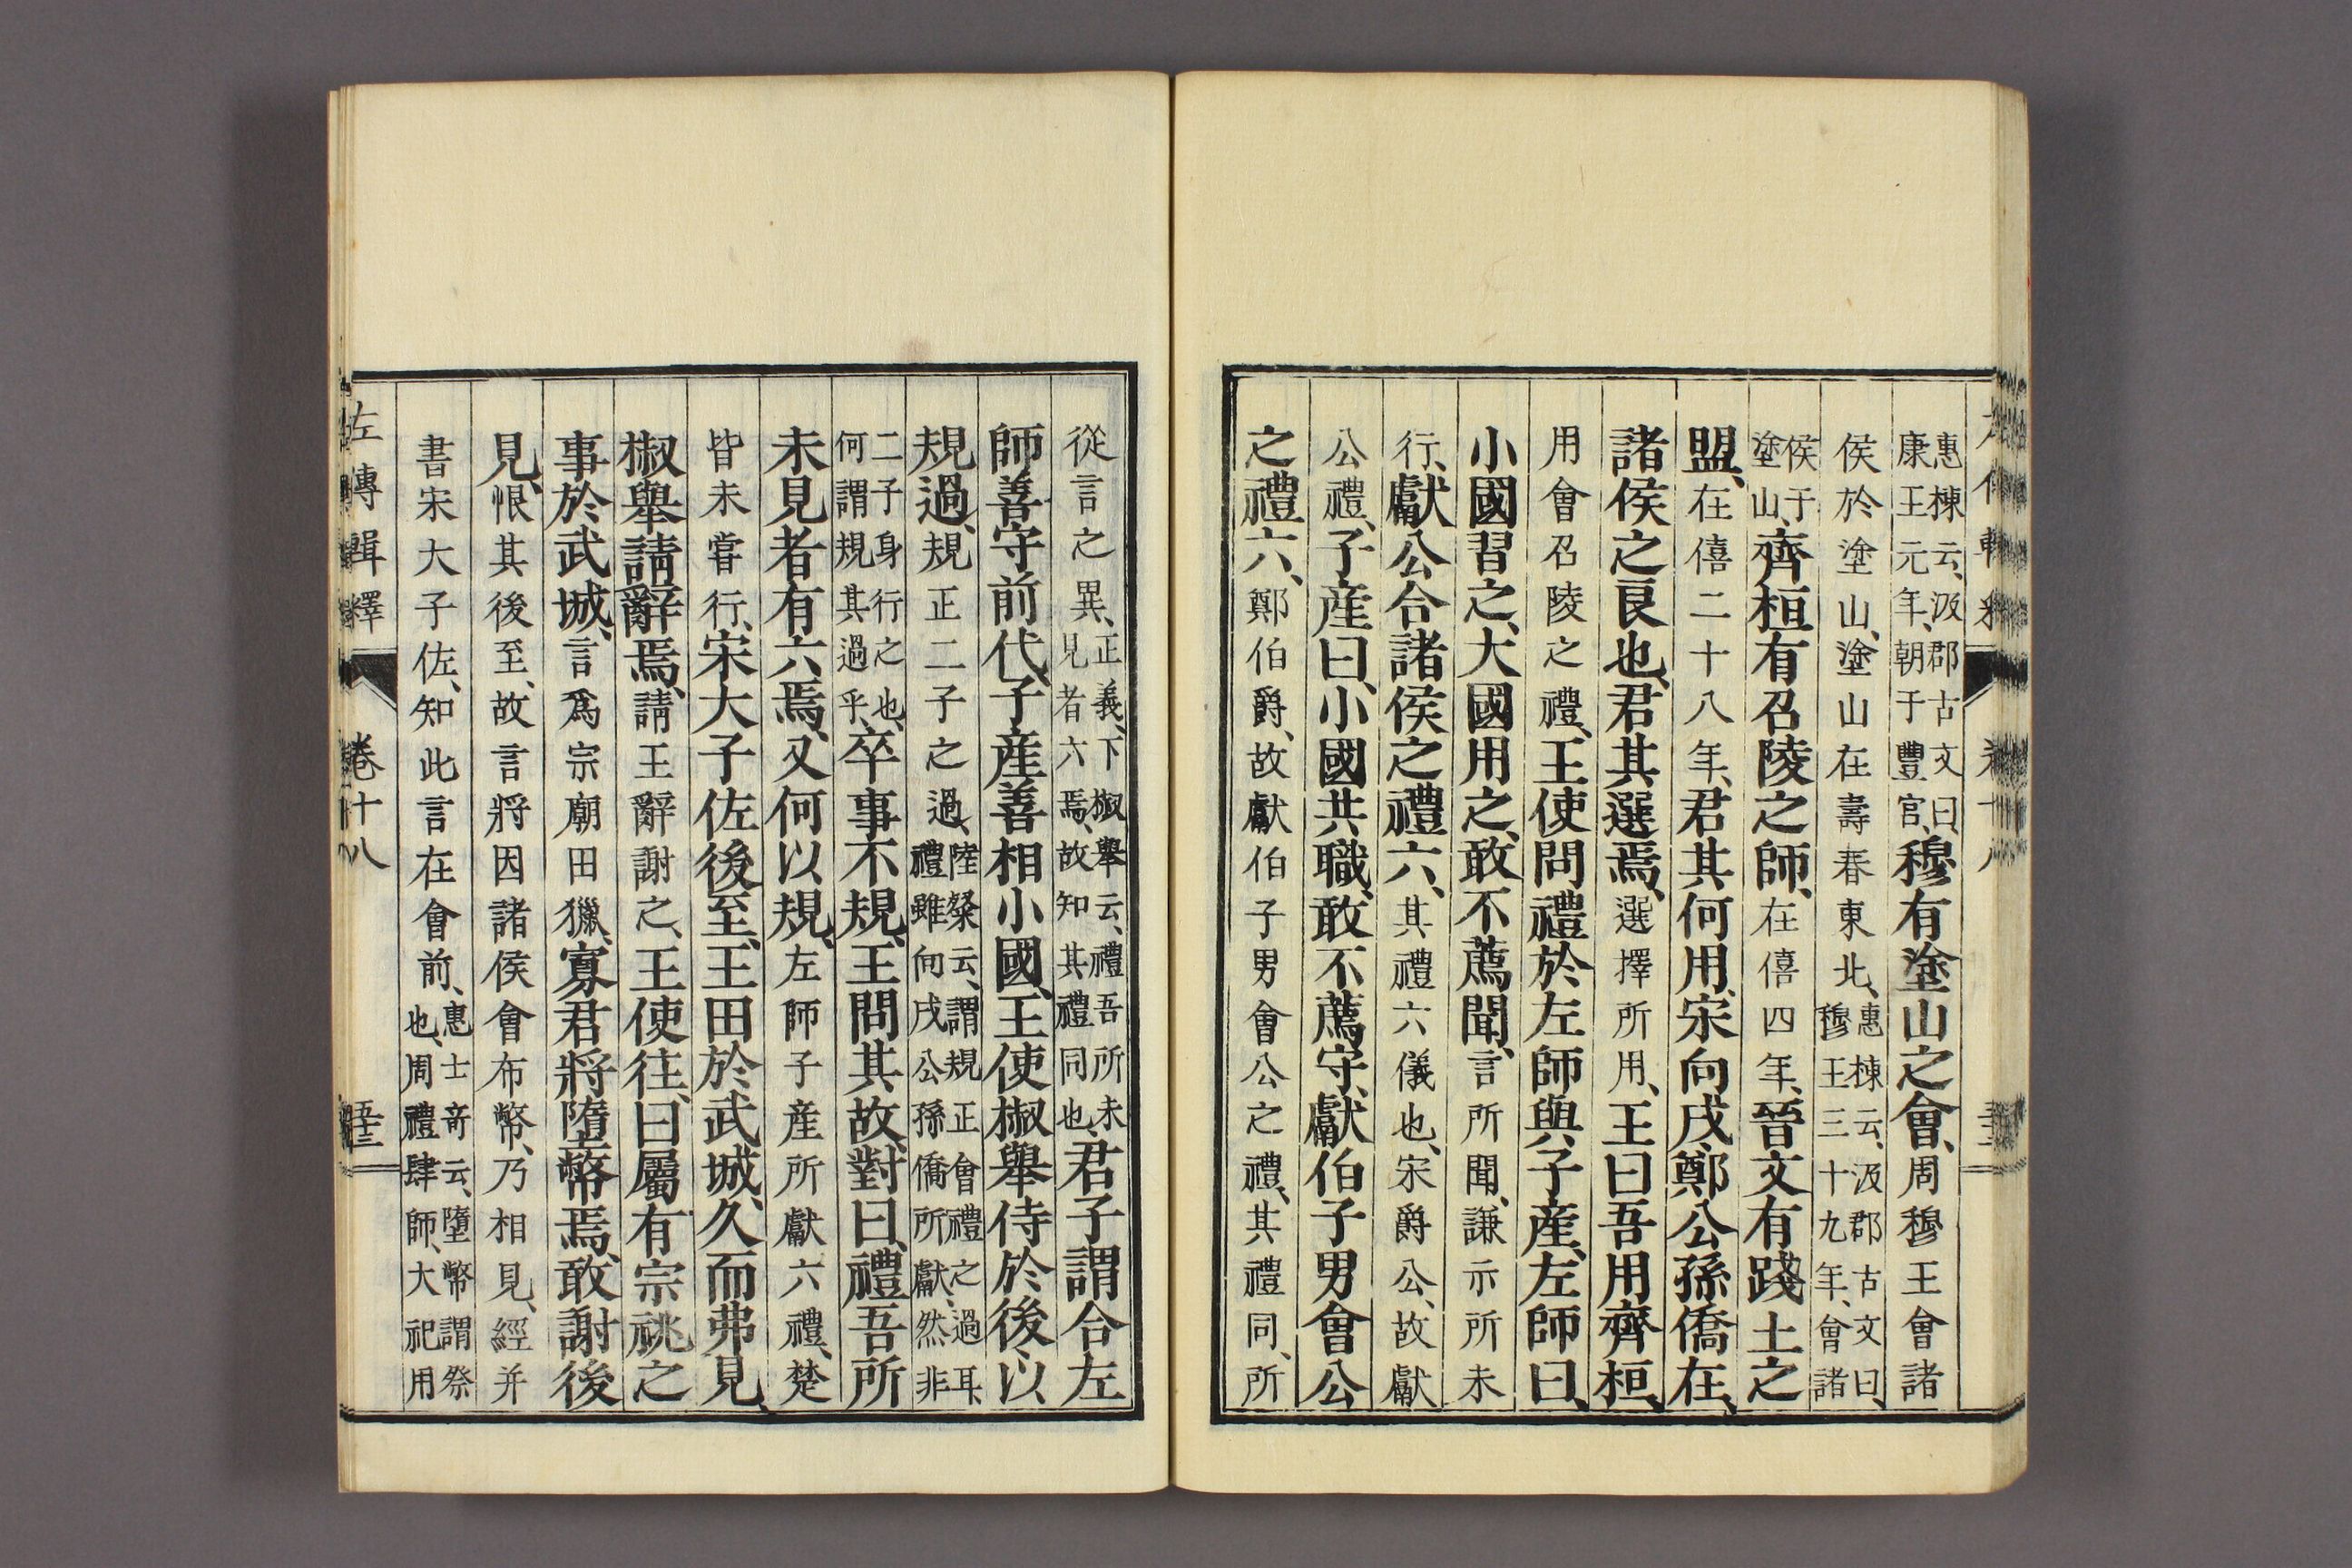 惠棟云、汲郡古文曰、康王元年、朝于豐官、穆有塗山之會、周穆王會諸
侯於塗山、塗山在壽春東北、惠棟云、汲郡古文曰、穆王三十九年、會諸
侯于塗山、齊桓有召陵之師、在僖四年、晉文有踐土之
盟、在僖二十八年、君其何用、宋向戌、鄭公孫僑在、
諸侯之良也、君其選焉、選擇所用、王曰吾用齊桓、
用會召陵之禮、王使問禮於左師與子產、左師曰、
小國習之、大國用之、敢不薦聞、言所聞、謙示所未
行、獻公合諸侯之禮六、其禮六儀也、宋爵公、故獻
公禮、子產曰、小國共職、敢不薦守、獻伯子男會公
之禮六、鄭伯爵、故獻伯子男會公之禮、其禮同、所
從言之異、正義、下椒舉云、禮吾所未見者六焉、故知其禮同也、君子謂合左
師善守前代、子產善相小國、王使椒舉侍於後以
規過、規正二子之過、陸粲云、謂規正會禮之過耳、禮雖向戌公孫僑所獻、然非
二子身行之也、何謂規其過乎、卒事不規、王問其故、對曰、禮吾所
未見者有六焉、又何以規、左師子產所獻六禮、楚
皆未嘗行、宋大子佐後至、王田於武城、久而弗見、
椒舉請辭焉、請王辭謝之、王使往、曰屬有宗祧之
事於武城、言爲宗廟田獵、寡君將墮幣焉、敢謝後
見、恨其後至、故言將因諸侯會布幣、乃相見、經并
書宋大子佐、知此言在會前、惠士奇云、墮幣謂祭也、周禮肆師、大祀用
左傳輯釋 卷十八 五十三